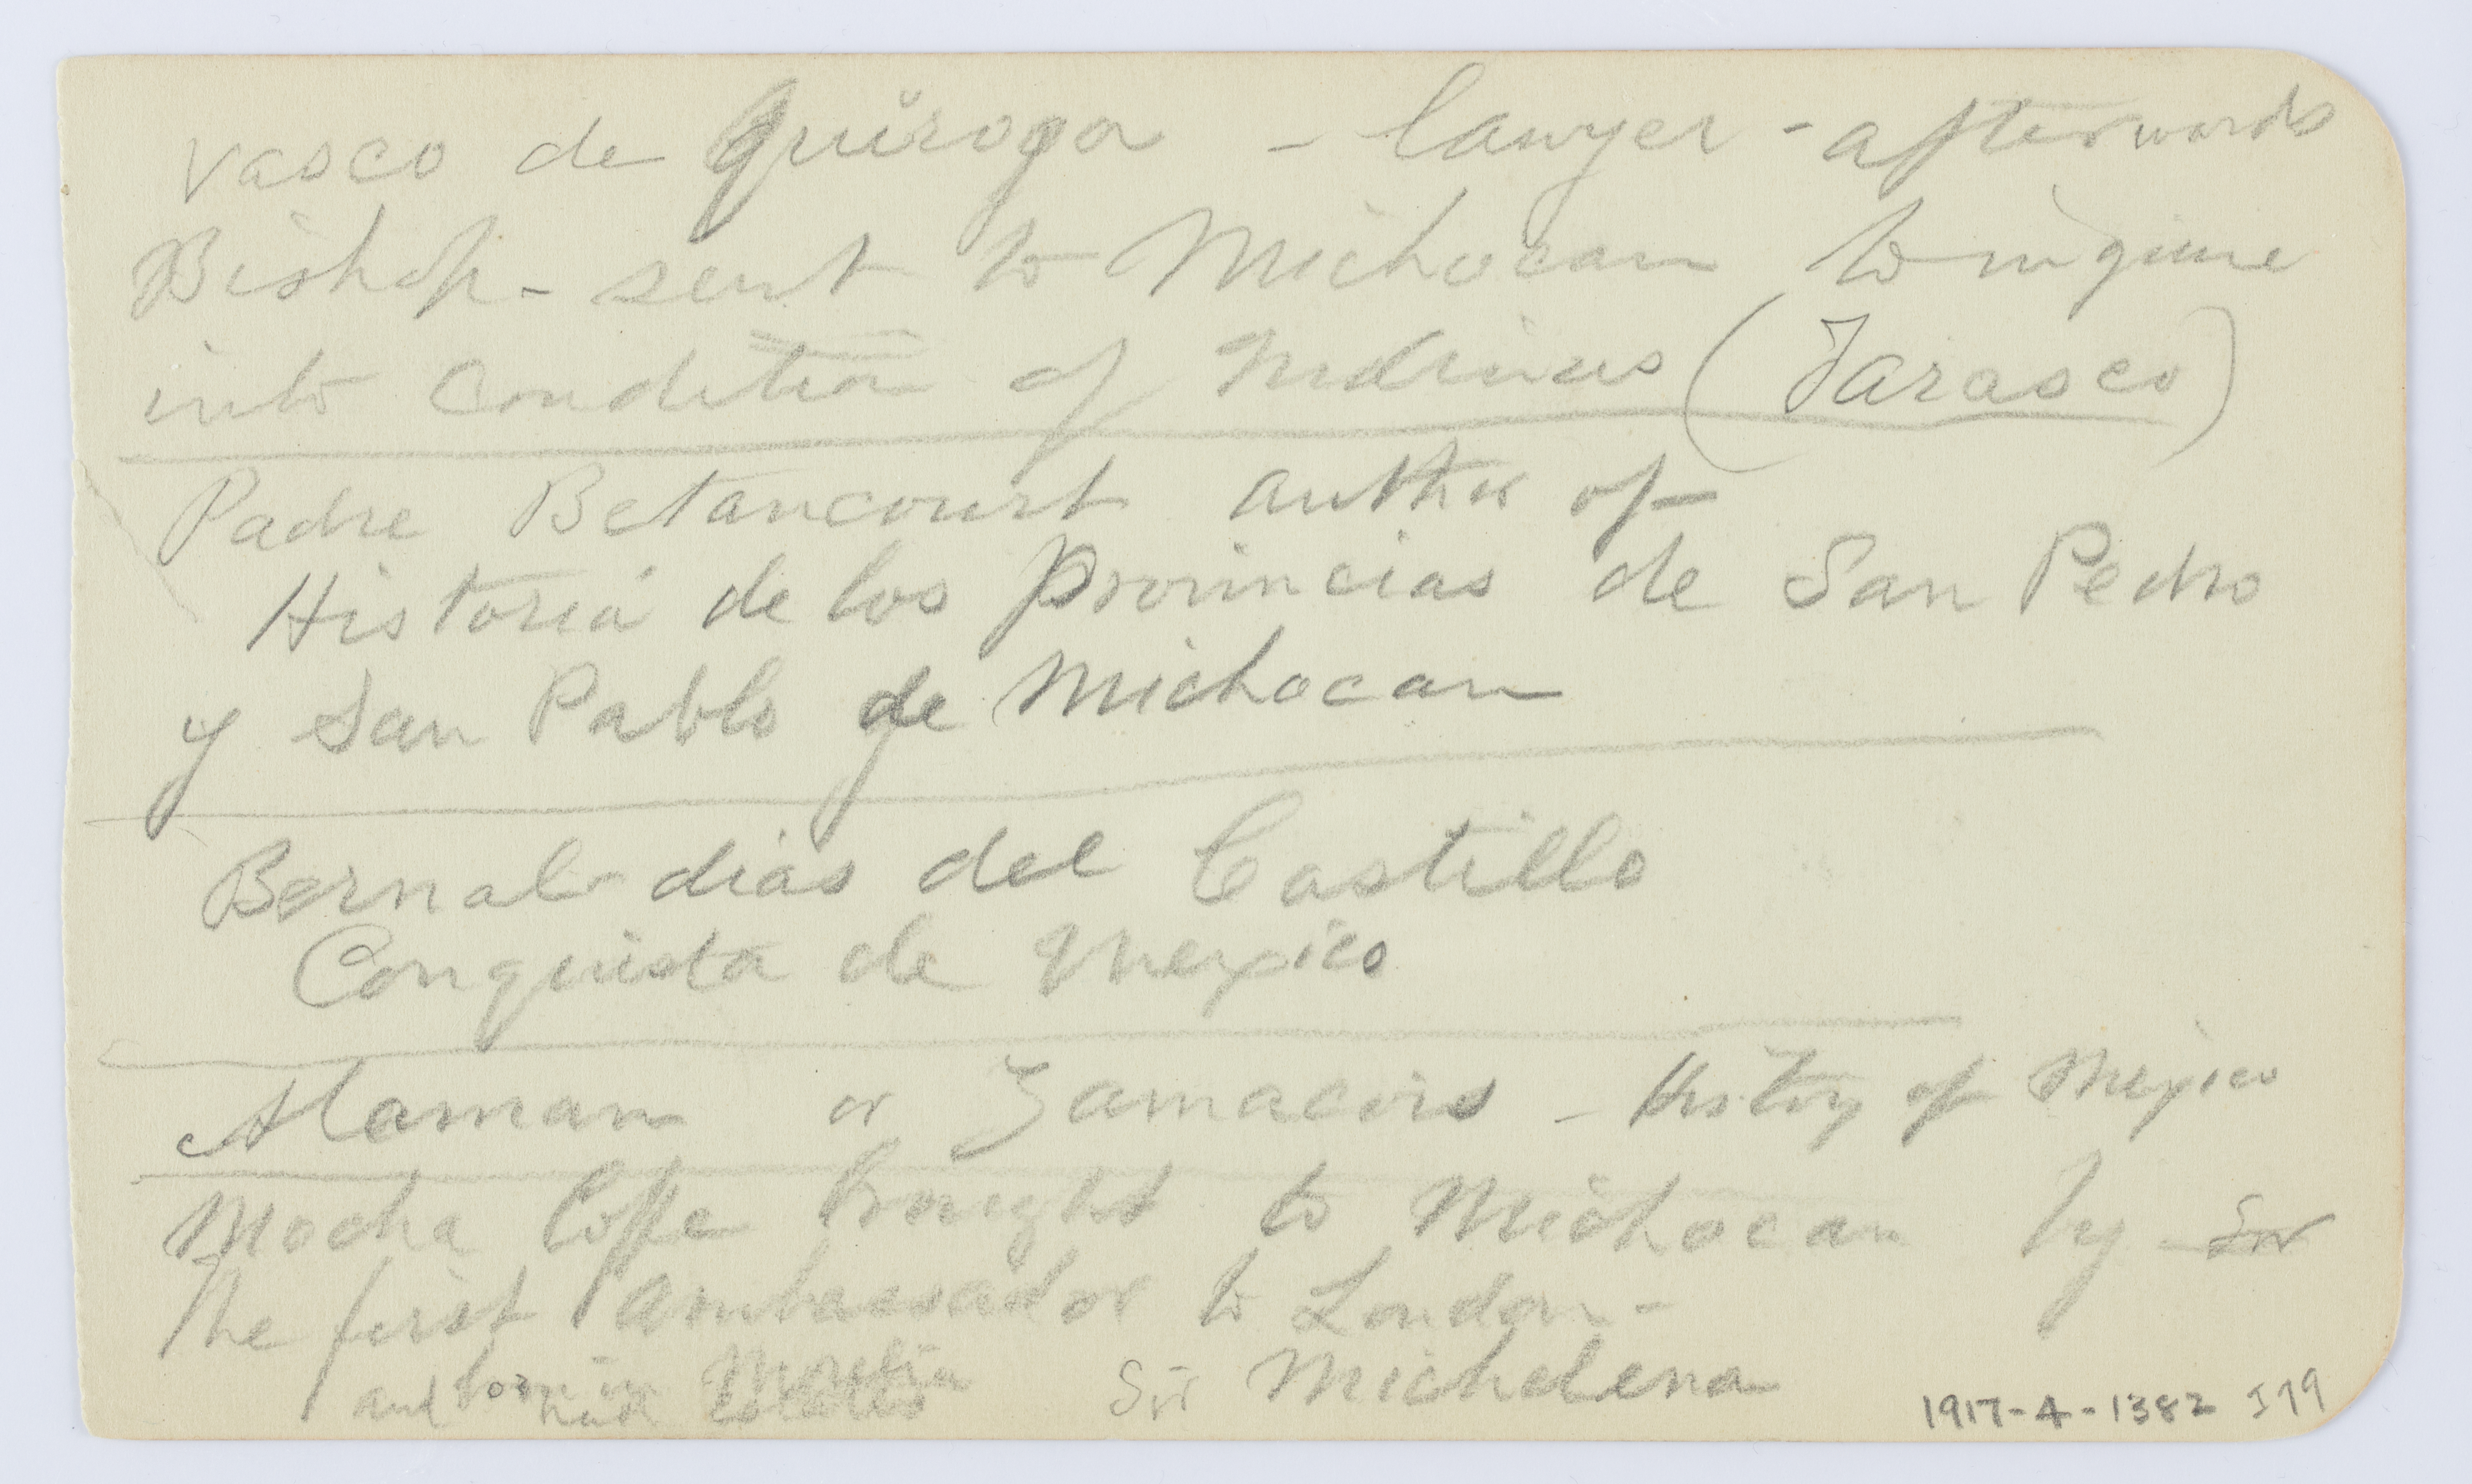 Vasco de Quiroga - lawyer - afterwards
Bishop - sent to Michocan to inquire
into Condition of Indians (Tarasco)
Padre Betancourt author of
Historia de los Provincias de San Pedro
y San Pablo de Michocan
Bernal dias del Castillo
Conquista de Mexico
Alaman or Zamacois - History of Mexico
Mocha Coffe brought to Michocan by Snr
The first Ambassador to London -
born in Morelia
and had Estates Sñr Michelena
1917-4-1382 J79